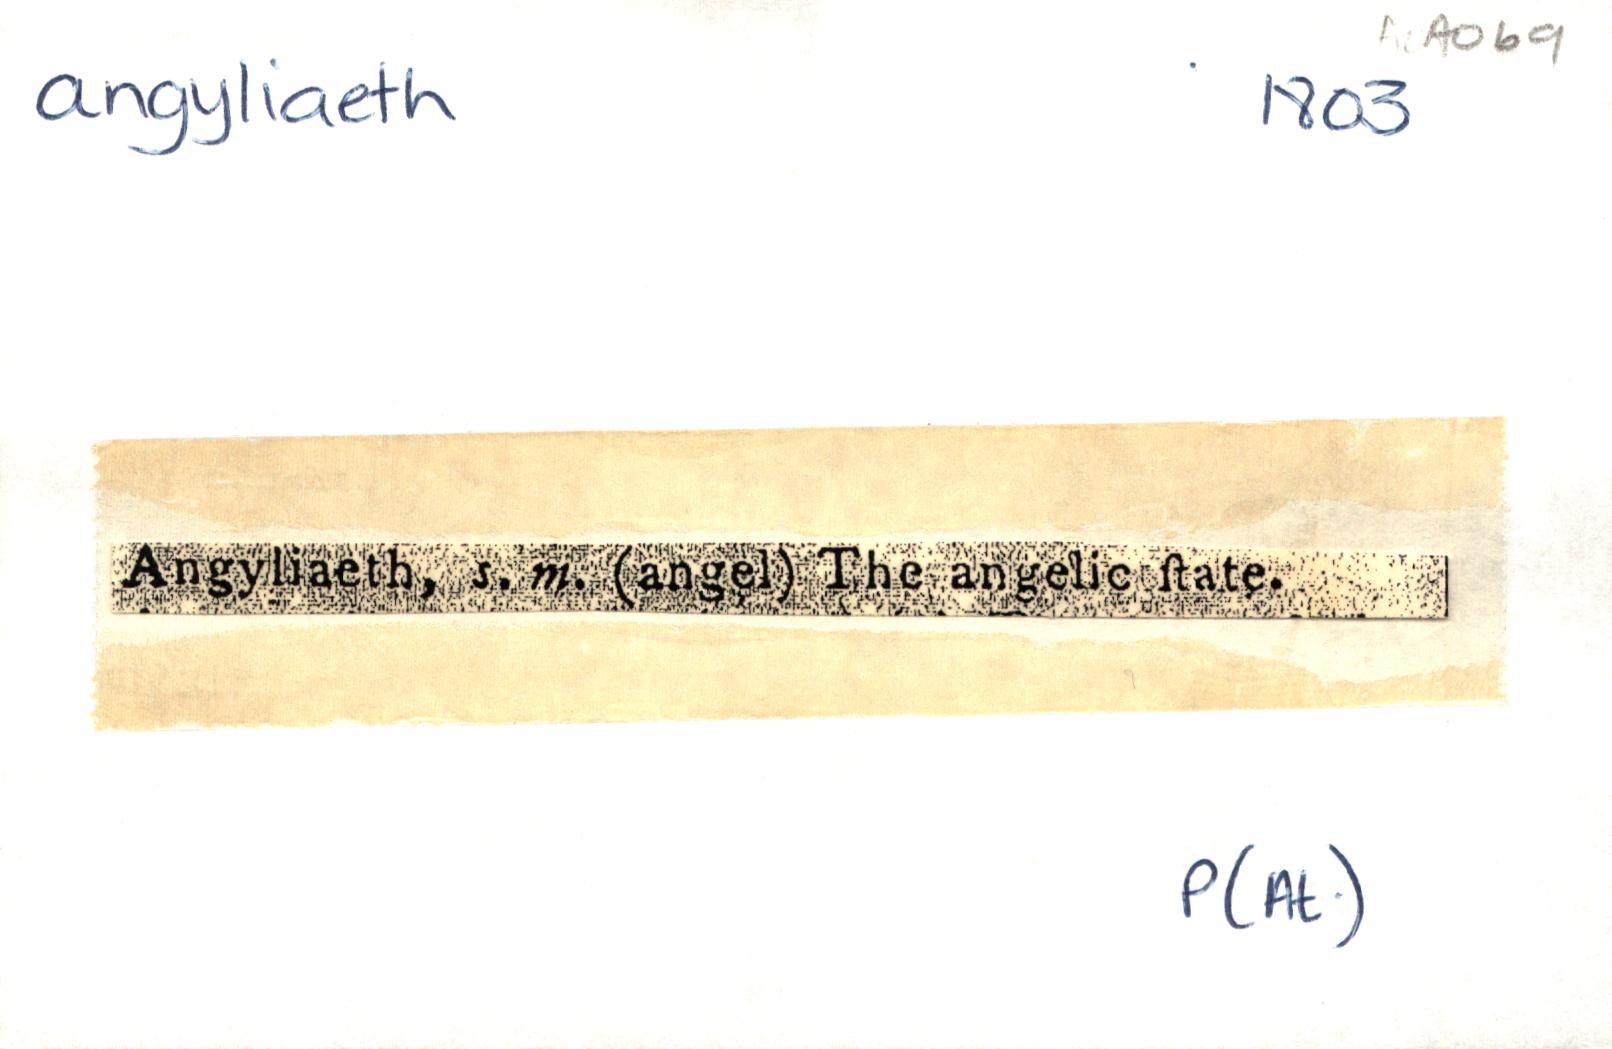 A069
angyliaeth 1803
Angyliaeth, s. m. (angel) The angelic ſtate.
P(At.)